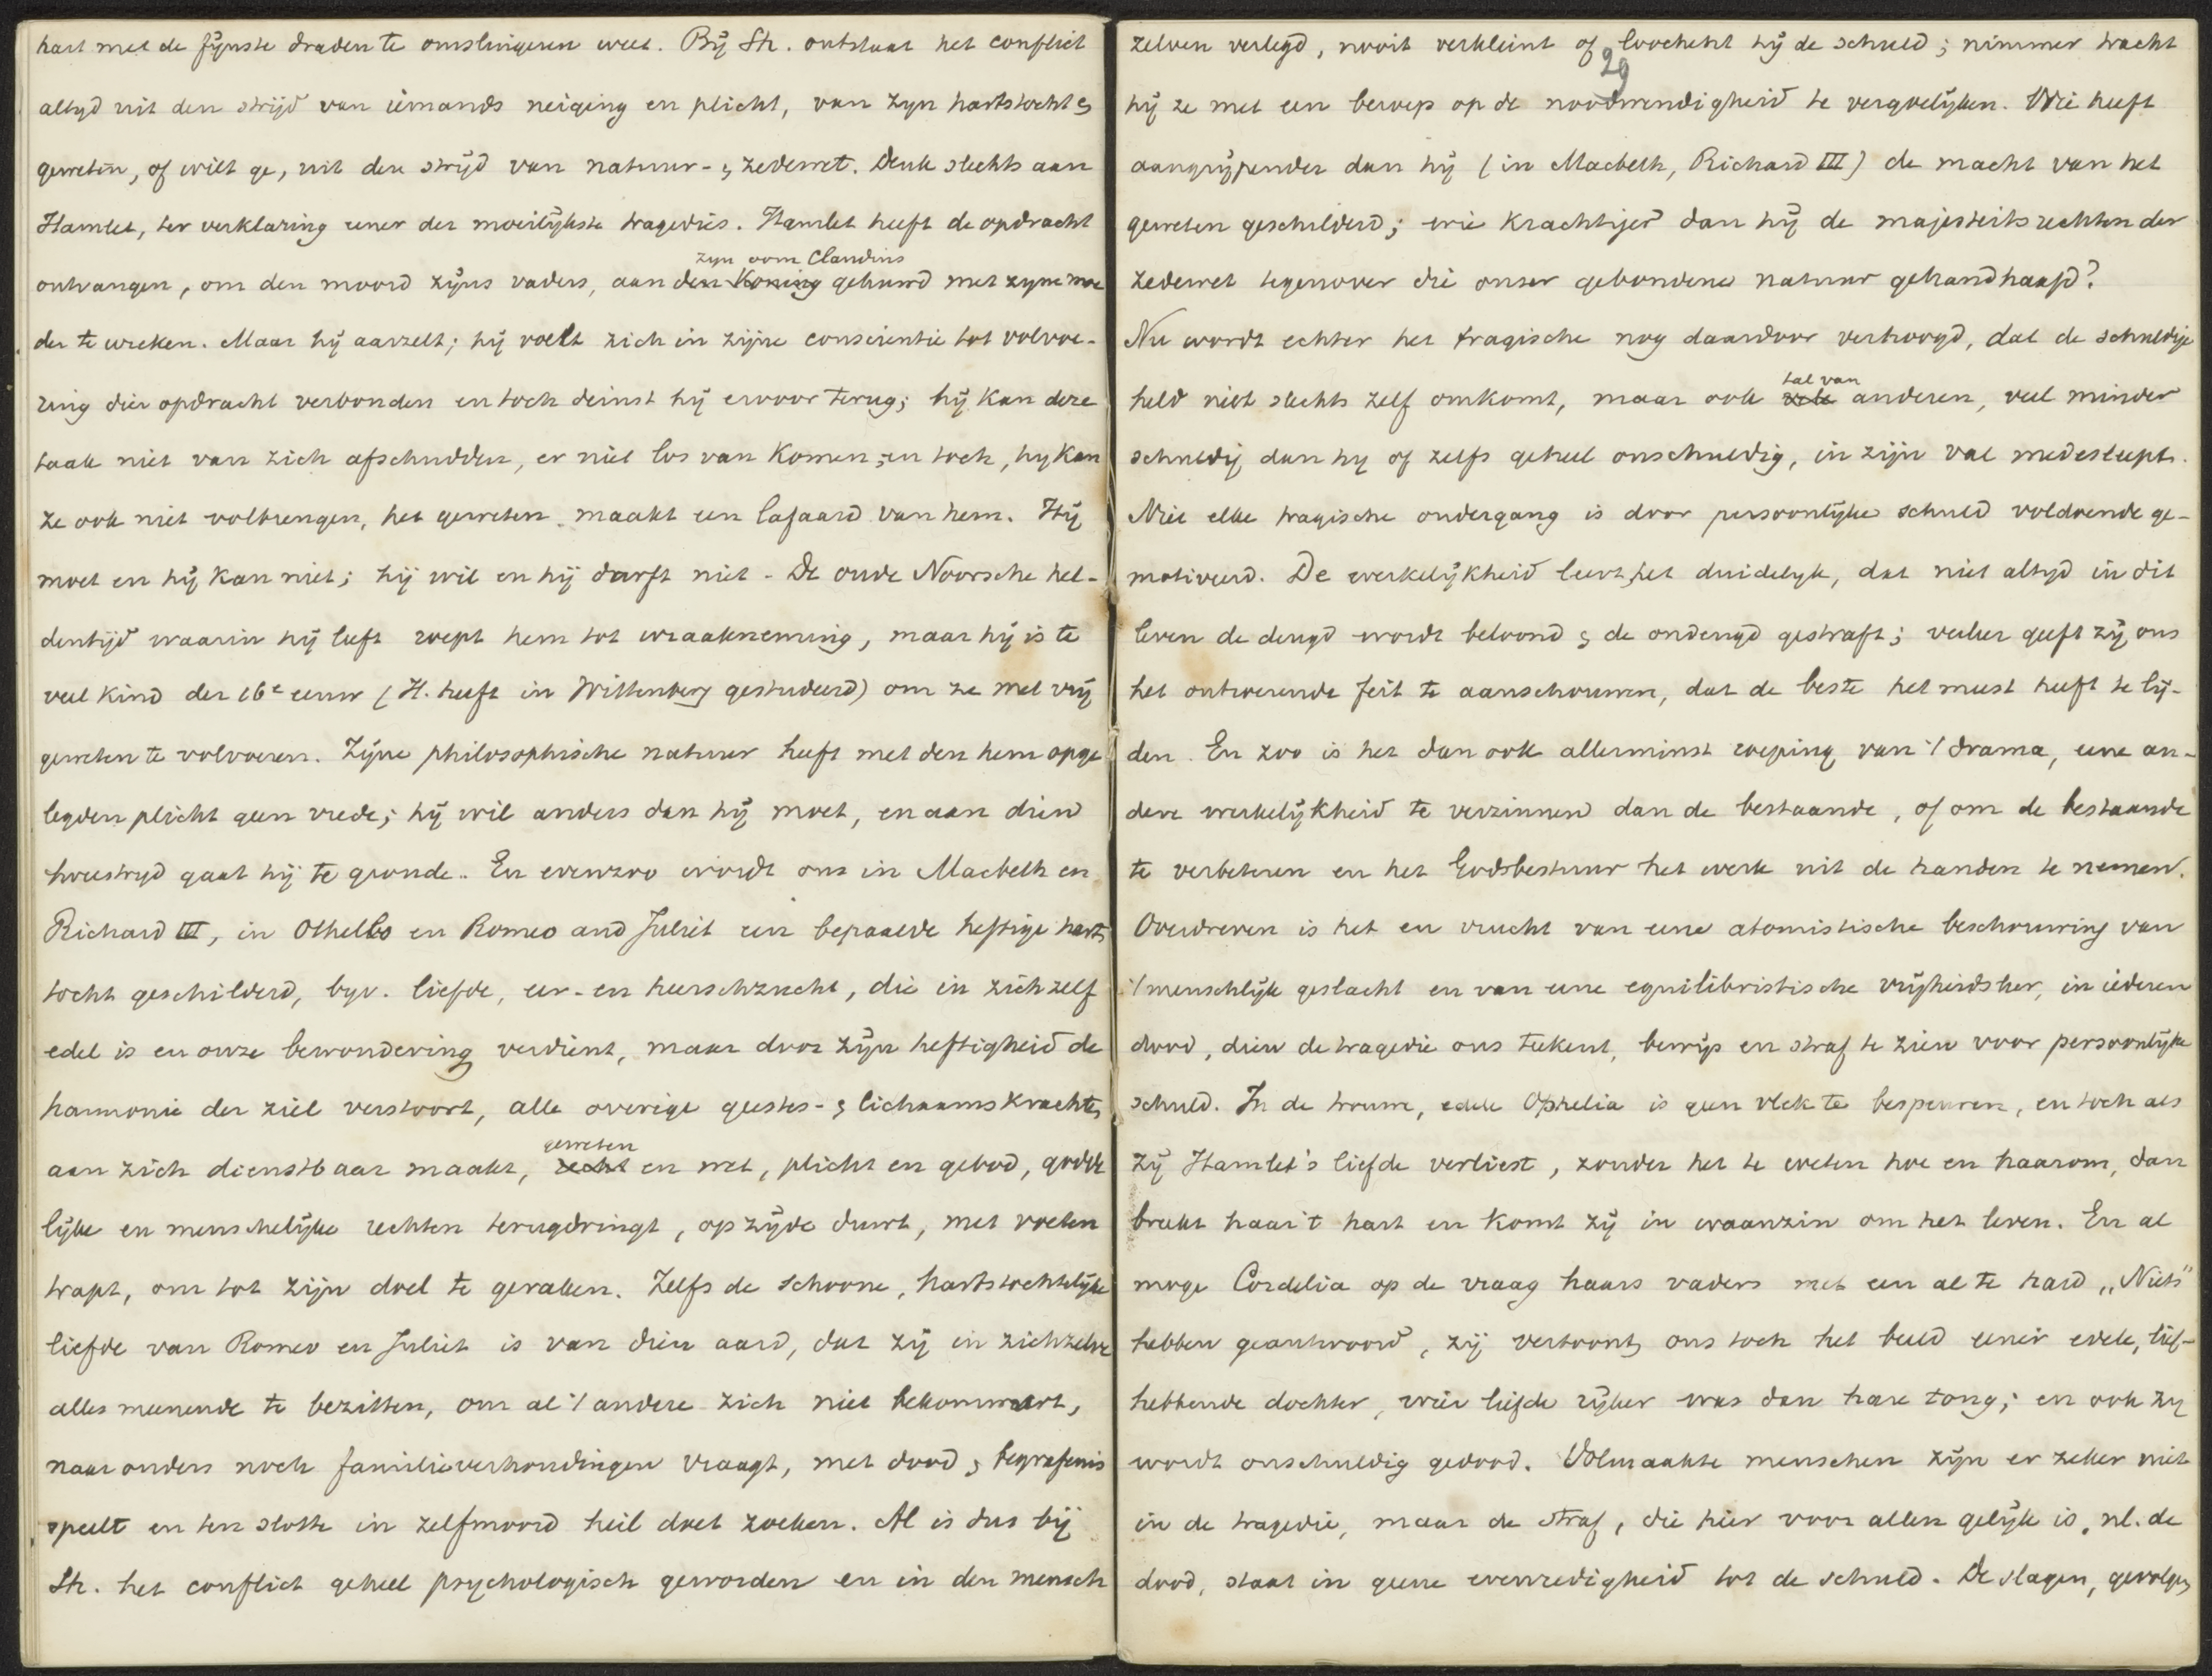 hart met de fijnste draden te omslingeren weet. Bij Sh. ontstaat het conflict
altyd uit den strijd van iemands neiging en plicht, van zyn hartstocht &
geweten, of wilt ge, uit den strijd van natuur- & zedewet. Denk slechts aan
Hamlet, ter verklaring eener der moeilijkste tragedies. Hamlet heeft de opdracht
zyn oom Claudius
ontvangen, om den moord zijns vaders, aan den Koning gehuwd met zyne moe
der te wreken. Maar hij aarzelt; hij voelt zich in zijne conscientie tot volvoe-
ring dier opdracht verbonden en toch deinst hij ervoor terug; hij kan deze
taak niet van zich afschudden, er niet los van komen; en toch, hy kan
ze ook niet volbrengen, het geweten maakt een lafaard van hem. Hij
moet en hij kan niet; hij wil en hij durft niet - De oude Noorsche hel-
dentijd waarin hij leeft roept hem tot wraakneming, maar hij is te
veel kind der 16e eeuw (H. heeft in Wittenberg gestudeerd) om ze met vrij
geweten te volvoeren. Zijne philosophische natuur heeft met den hem opge
legden plicht geen vrede; hij wil anders dan hij moet, en aan dien
twestryd gaat hij te gronde. En evenzoo wordt ons in Macbeth en
Richard III, in Othello en Romeo and Juliet een bepaalde heftige harts
tocht geschilderd, byv. liefde, eer- en heerschzucht, die in zichzelf
edel is en onze bewondering verdient, maar door zijn heftigheid de
harmonie der ziel verstoort, alle overige geestes- & lichaamskrachten
geweten
aan zich dienstbaar maakt, recht en wet, plicht en gebod, godde
lijke en menschelijke rechten terugdringt, op zijde duwt, met voeten
trapt, om tot zijn doel te geraken. Zelfs de schoone, hartstochtelijke
liefde van Romeo en Juliet is van dien aard, dat zij in zichzelve
alles meenende te bezitten, om al 't andere zich niet bekommert,
naar ouders noch familieverhoudingen vraagt, met dood & begrafenis
speelt en ten slotte in zelfmoord heil doet zoeken. Al is dus bij
Sh. het conflict geheel psychologisch geworden en in den mensch
29
zelven verlegd, nooit verkleint of loochent hij de schuld; nimmer tracht
hij ze met een beroep op de noodwendigheid te vergoelijken. Wie heeft
aangrijpender dan hij (in Macbeth, Richard III) de macht van het
geweten geschilderd; wie krachtiger dan hij de majesteitsrechten der
zedewet tegenover die onser gebondene natuur gehandhaafd?
Nu wordt echter het tragische nog daardoor verhoogd, dat de schuldige
tal van
held niet slechts zelf omkomt, maar ook vele anderen, veel minder
schuldig dan hy of zelfs geheel onschuldig, in zijn val medesleept.
Niet elke tragische ondergang is door persoonlijke schuld voldoende ge-
motiveerd. De werkelijkheid leert het duidelyk, dat niet altyd in dit
leven de deugd wordt beloond & de ondeugd gestraft; veeleer geeft zij ons
het ontroerende feit te aanschouwen, dat de beste het meest heeft te lij-
den. En zoo is het dan ook allerminst roeping van 't drama, eene an-
dere werkelijkheid te verzinnen dan de bestaande, of om de bestaande
te verbeteren en het Godsbestuur het werk uit de handen te nemen.
Overdreven is het en vrucht van eene atomistische beschouwing van
't menschlijk geslacht en van eene equilibristische vrijheidsleer, in iederen
dood, dien de tragedie ons teekent, bewijs en straf te zien voor persoonlijke
schuld. In de trouwe, edele Ophelia is geen vlek te bespeuren, en toch als
zij Hamlet's liefde verliest, zonder het te weten hoe en waarom, dan
breekt haar 't hart en komt zij in waanzin om het leven. En al
moge Cordelia op de vraag haars vaders met een al te hard „Niets"
hebben geantwoord, zij vertoont ons toch het beeld eener edele, lief-
hebbende dochter, wier liefde rijker was dan hare tong; en ook zy
wordt onschuldig gedood. Volmaakte menschen zijn er zeker niet
in de tragedie, maar de straf, die hier voor allen gelijk is, nl. de
dood, staat in geene evenredigheid tot de schuld. De slagen, gevolgen